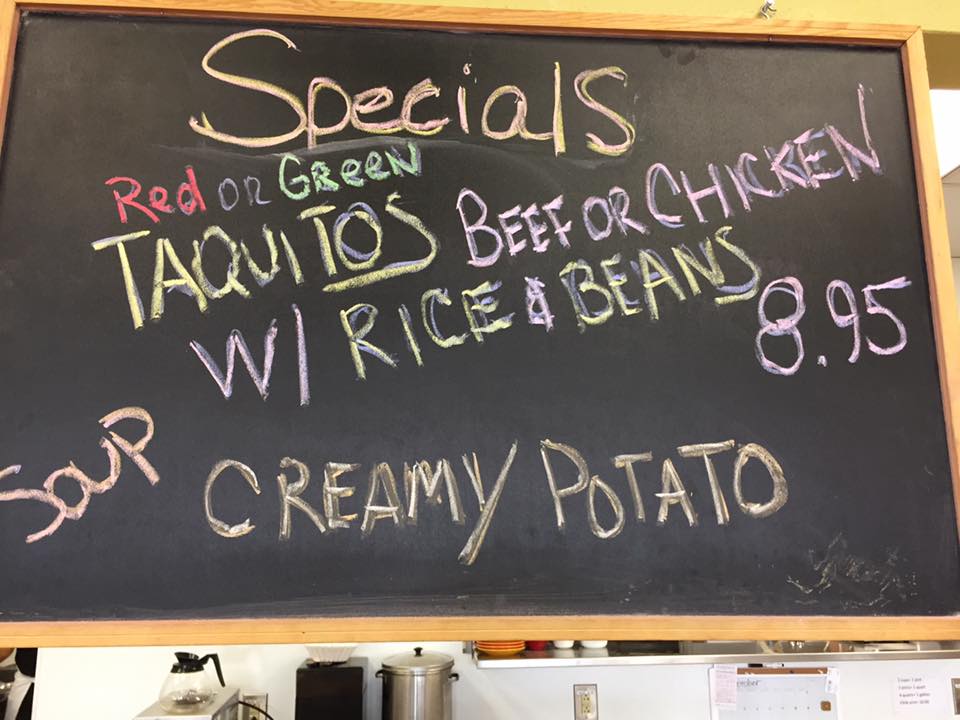 Specials
Red or Green
TAQUITOS BEEF OR CHICKEN
W/ RICE & BEANS 8.95
SOUP CREAMY POTATO